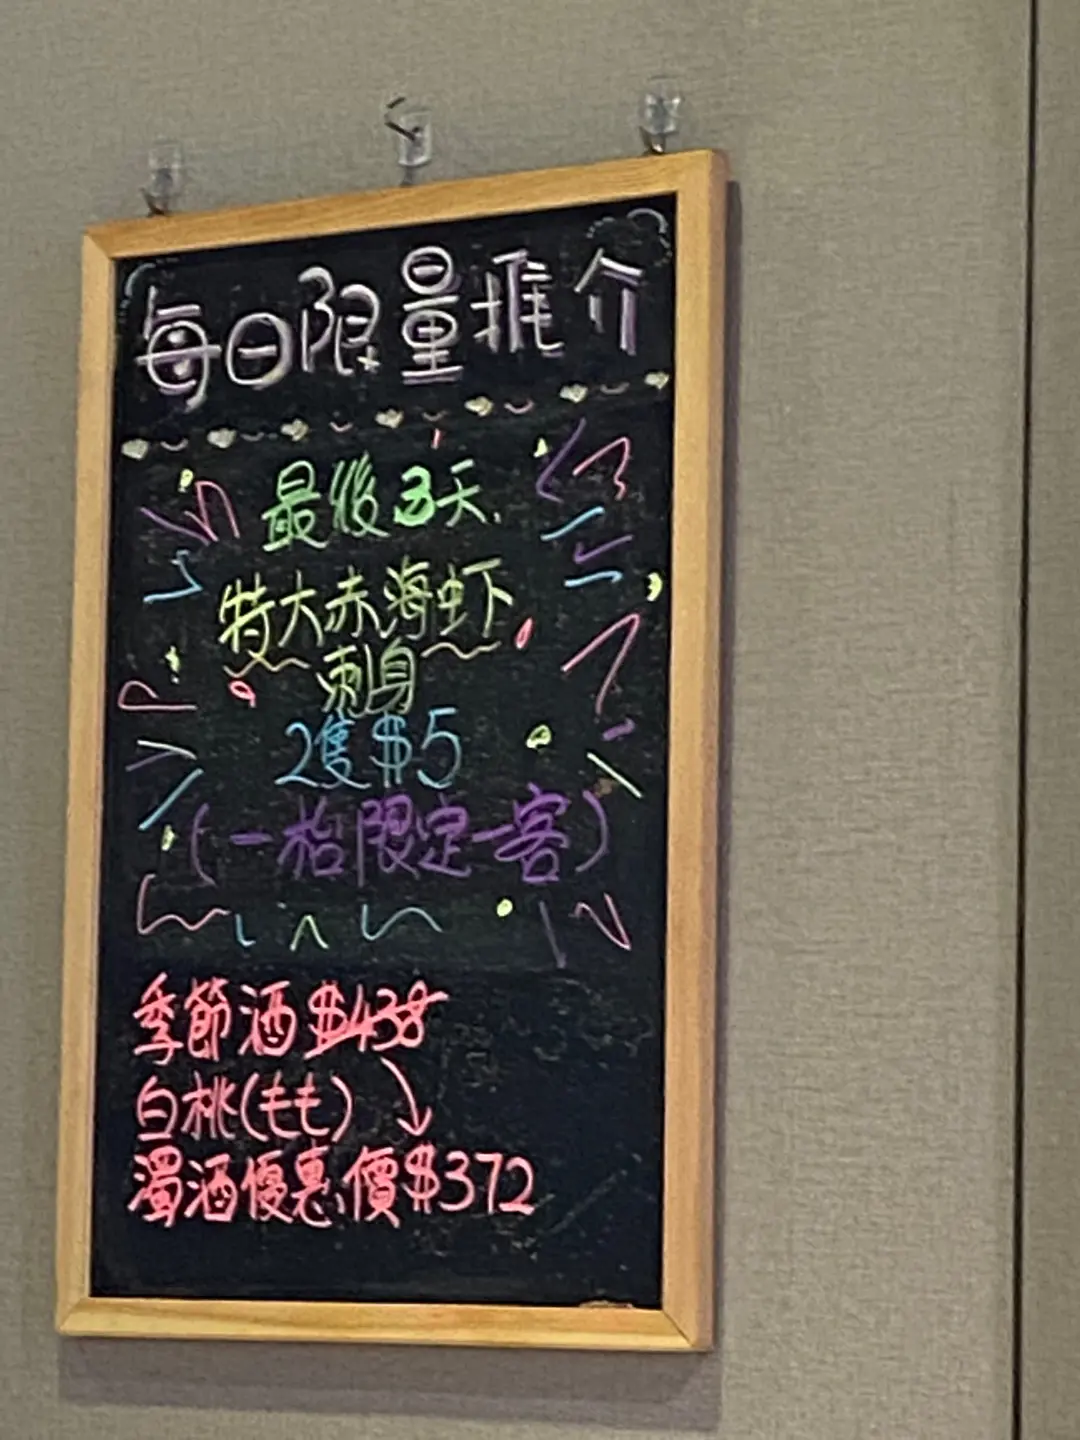 每日限量推介
最後3天
特大赤海虾
刺身
2隻$5
(一枱限定一客)
季節酒$438
白桃(もも)
濁酒優惠價$372